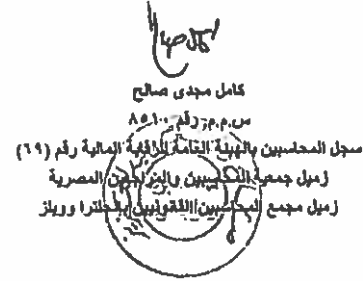 كامل مجدى صالح
س.م.م. رقم ٨٥١٠
سجل المحاسبين بالهيئة العامة للرقابة المالية رقم (٦٩)
زميل جمعية المحاسبين والمراجعين المصرية
زميل مجمع المحاسبين القانونيين بانجلترا وويلز